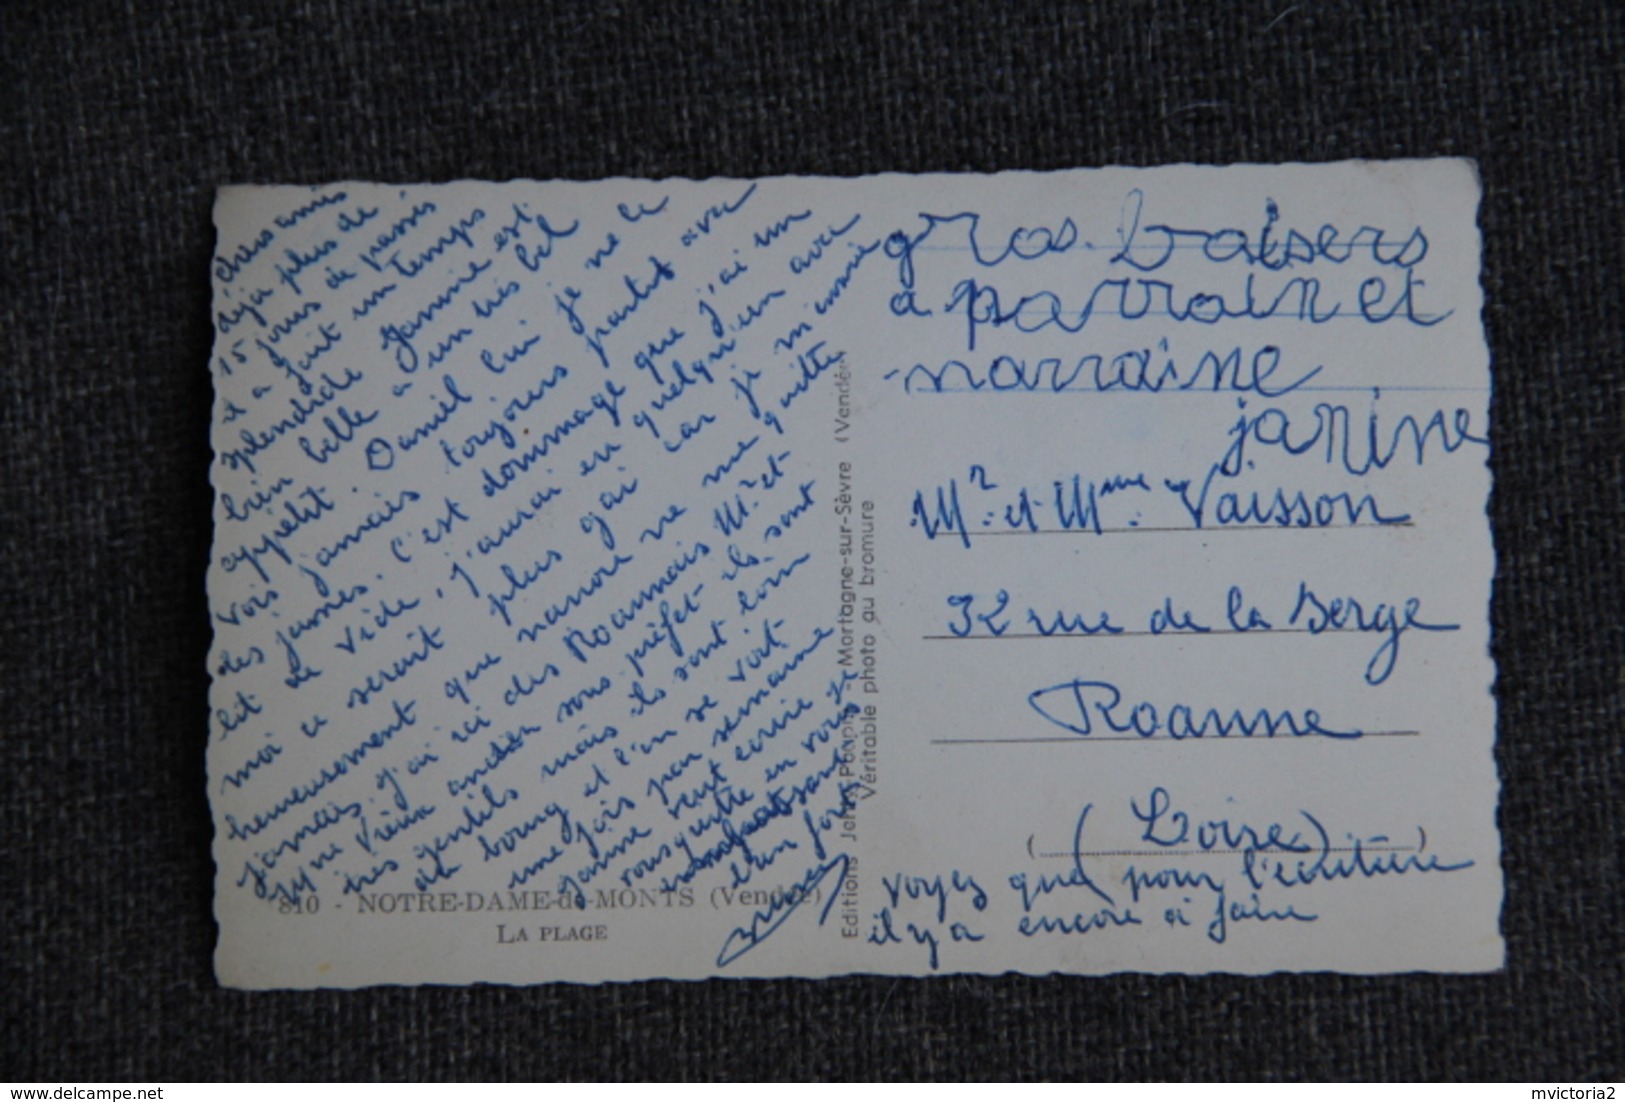 chers amis
déjà plus de
15 jours de passés
il a fait un temps
splendide Jannine est
bien belle a un très bel
appétit. Daniel lui je ne le
vois jamais toujours partit avec
des jeunes. c'est dommage que j'ai un
lit de vide, j'aurai eu quelqu'un avec
moi ce serait plus gai car je m'ennuie
heureusement que nanoue ne me quitte
jamais. j'ai ici des Roannais Mr et
ancien sous préfet ils sont
très gentils mais ils sont loin
du bourg et l'on se voit
une fois par semaine
Jannine veut écrire
vous quitte en vous
810 - NOTRE-DAME-de-MONTS (Vendée)
LA PLAGE
Editions Mortagne-sur-Sèvre (Vendée)
Véritable photo au bromure
gros baisers
a parrain et
marraine
janine
Mr. et Mme. Vaisson
32 rue de la Berge
Roanne
(Loire)
voyez que pour l'écriture
il y a encore à faire
mvictoria2